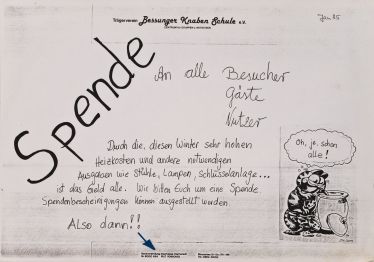 Trägerverein Bessunger Knaben Schule e.V.
Jan 85
Spende
An alle Besucher
Gäste
Nutzer
Durch die, diesen Winter sehr hohen
Heizkosten und andere notwendigen
Ausgaben wie Stühle, Lampen, Schlüsselanlage...
ist das Geld alle. Wir bitten Euch um eine Spende.
Spendenbescheinigungen können ausgestellt wurden.
Also dann!!
Oh, je, schon
alle!